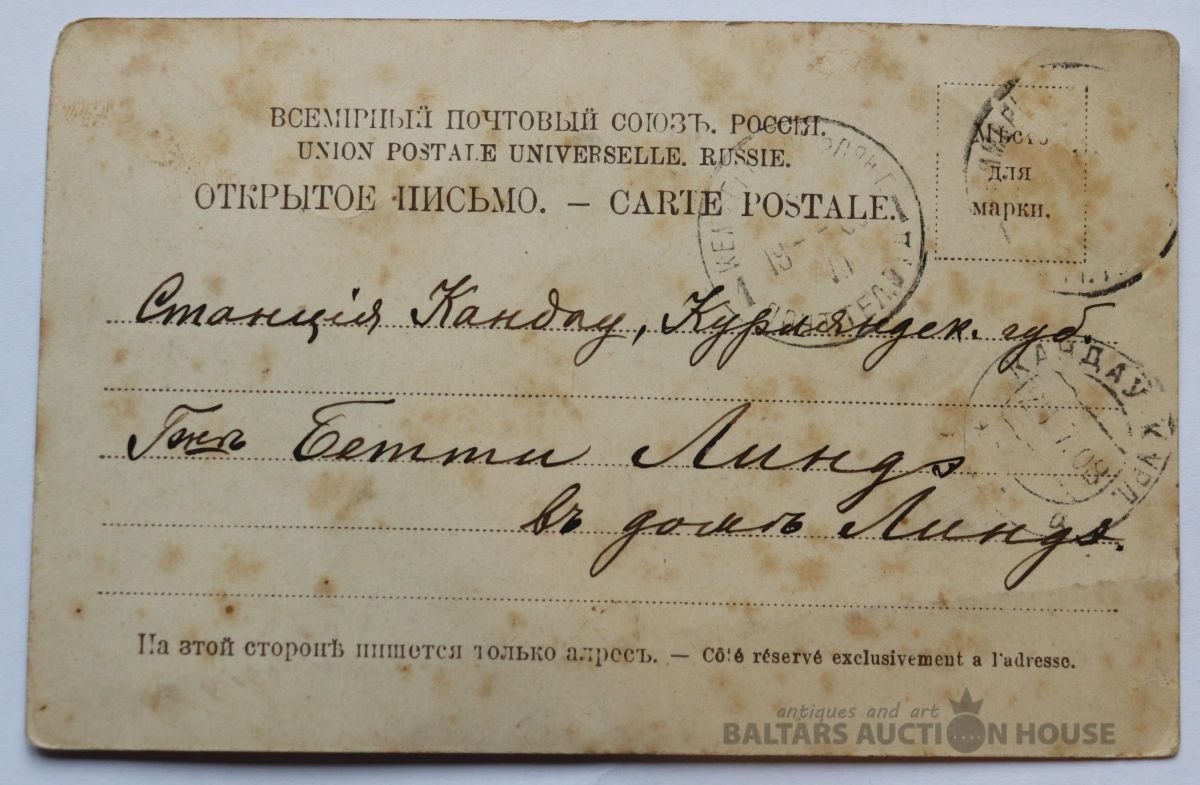 ВСЕМІРНЫЙ ПОЧТОВЫЙ СОЮЗЪ. РОССІЯ.
UNION POSTALE UNIVERSELLE. RUSSIE.
ОТКРЫТОЕ ПИСЬМО. — CARTE POSTALE.
Мѣсто
для
марки.
Станція Кандау, Курляндск. губ.
КАНДАУ КУРЛ.
Гжѣ Бетти Линдэ
въ домѣ Линдэ.
На этой сторонѣ пишется только адресъ. — Côté réservé exclusivement a l'adresse.
antiques and art
BALTARS AUCTION HOUSE